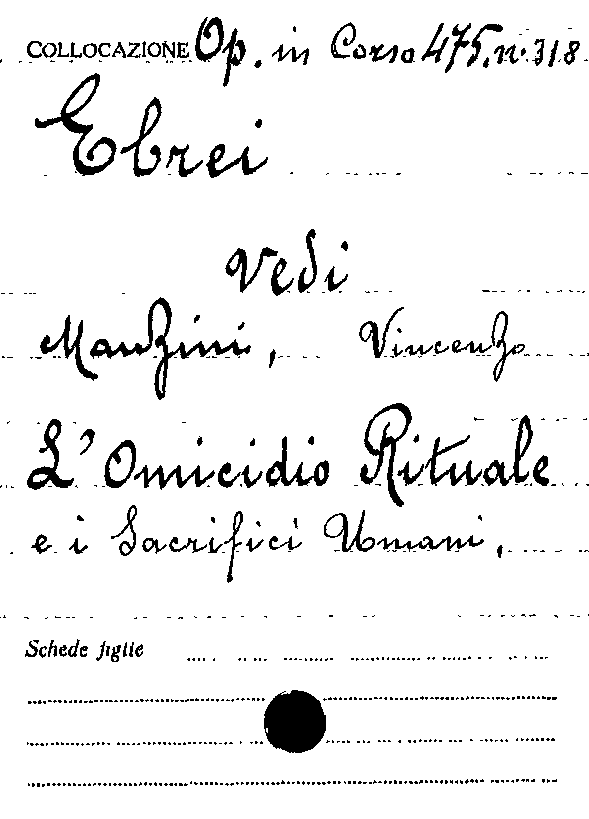 COLLOCAZIONE Op. in Corso 475. n. 318
Ebrei
Vedi
Manzini, Vincenzo
L'Omicidio Rituale
e i Sacrifici Umani,
Schede figlie